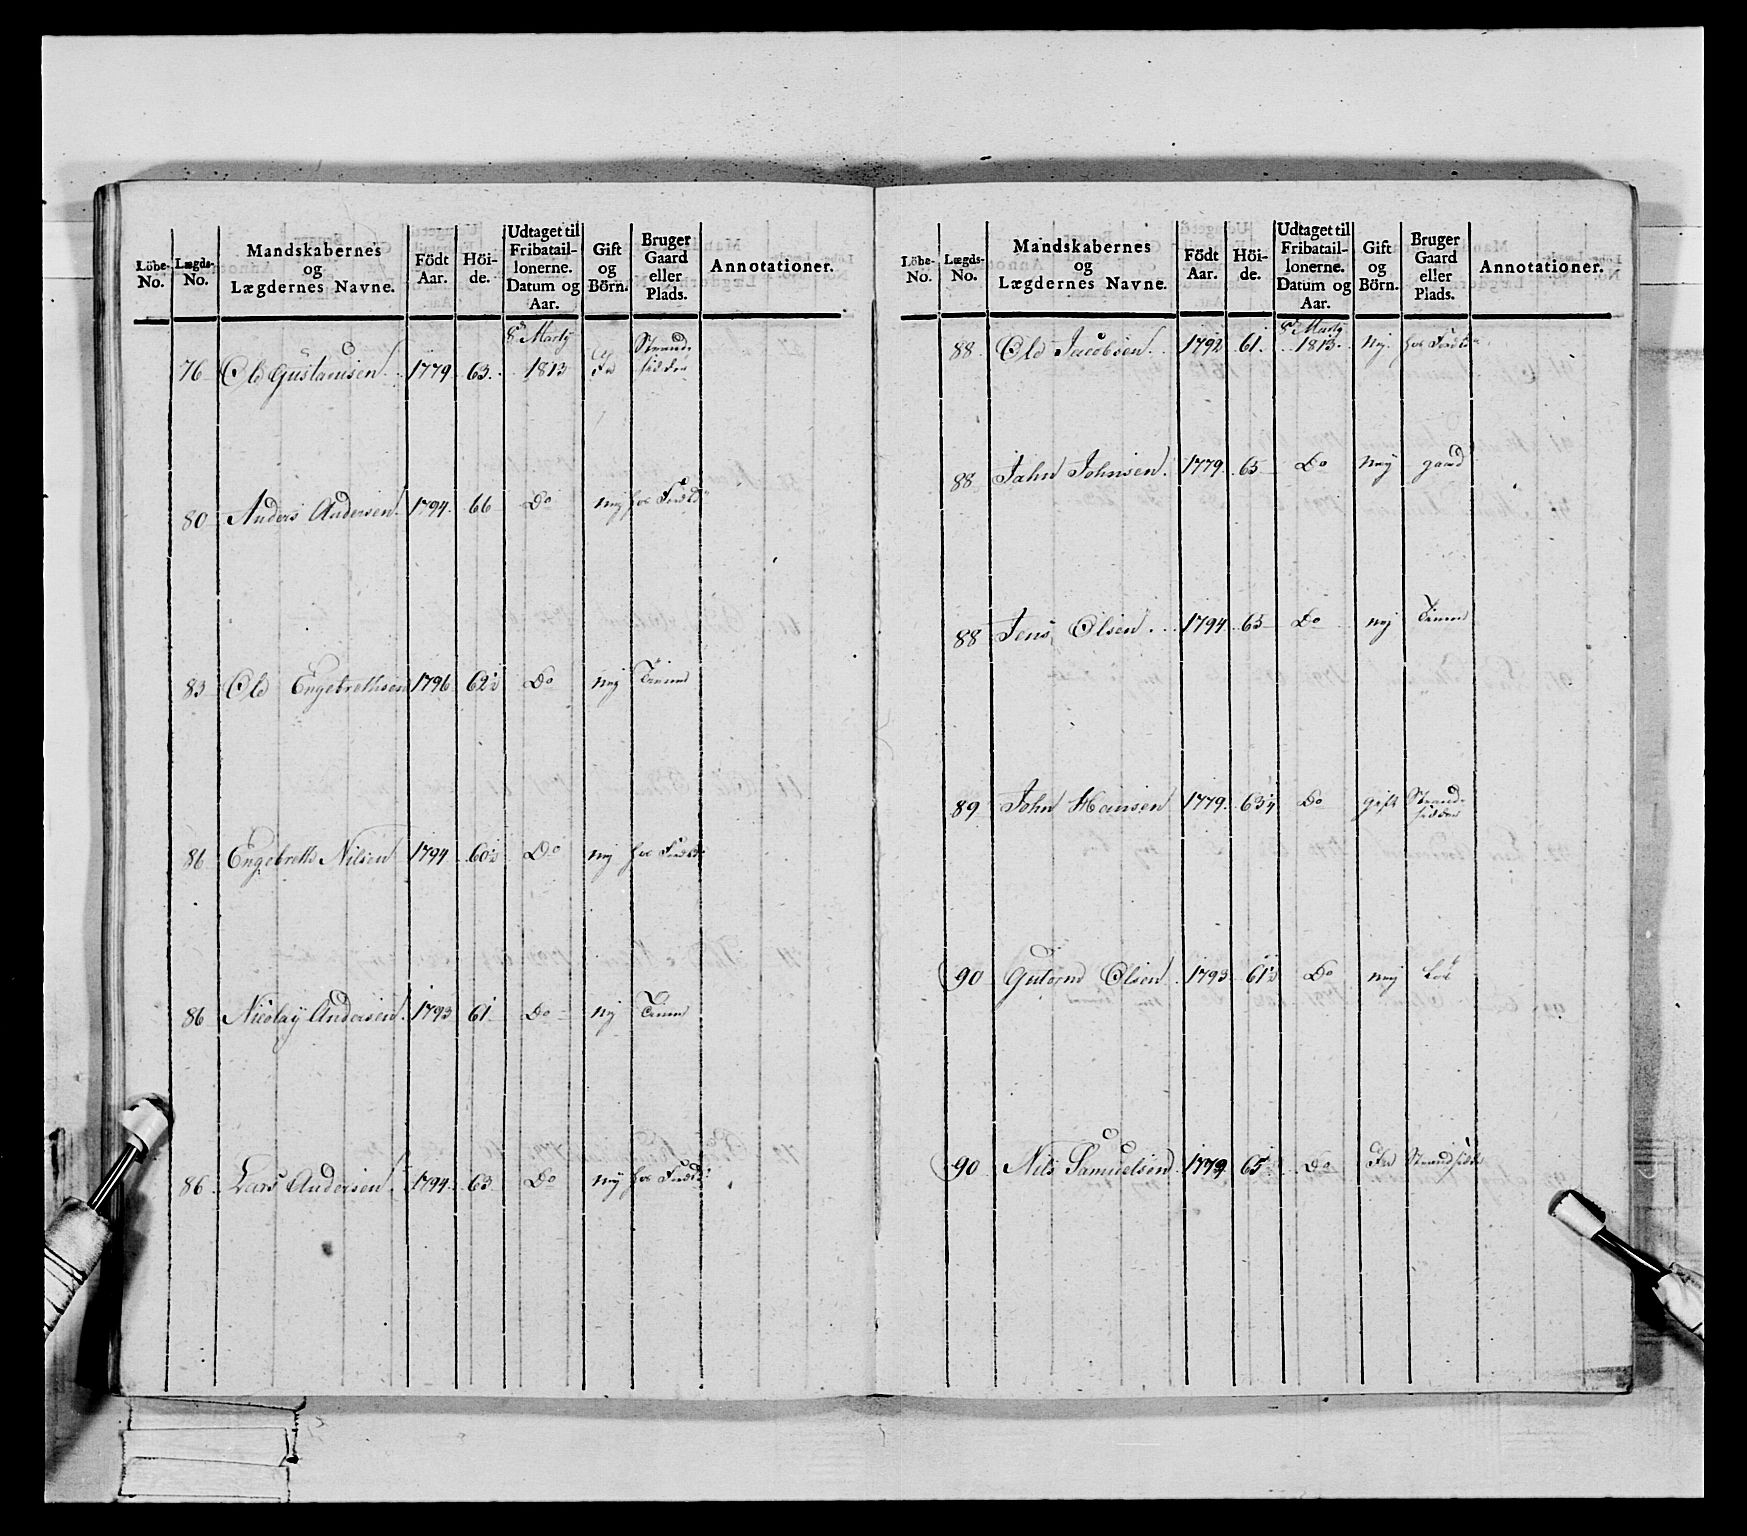 Löbe-No. Lægds-No. Mandskabernes og Lægdernes Navne. Födt Aar. Höi-de. Udtaget til Fribatail-lonerne. Datum og Aar. Gift og Börn. Bruger Gaard eller Plads. Annotationer.
76 Ole Gustavsen 1779 63 8de Martÿ 1813 Strand-sidder
80 Anders Andersen 1794 66 Do nej
83 Ole Engebrethsen 1796 62½ Do nej Tienner
86 Engebreth Nilsen 1794 60½ Do nej
86 Nicolaÿ Andersen 1793 61 Do nej Tienner
86 Lars Andersen 1794 63 Do nej
Löbe-No. Lægds-No. Mandskabernes og Lægdernes Navne. Födt Aar. Höi-de. Udtaget til Fribatail-lonerne. Datum og Aar. Gift og Börn. Bruger Gaard eller Plads. Annotationer.
88 Ole Jacobsen 1792 61 8de Martÿ 1813 nej
88 Jahn Johnsen 1779 65 Do nej gaard
88 Jens Olsen 1794 65 Do nej Tienner
89 John Hansen 1779 63¼ Do gift Strand-sidder
90 Gutorm Olsen 1793 61½ Do nej
90 Nils Samuelsen 1779 65 Do Strandsidder